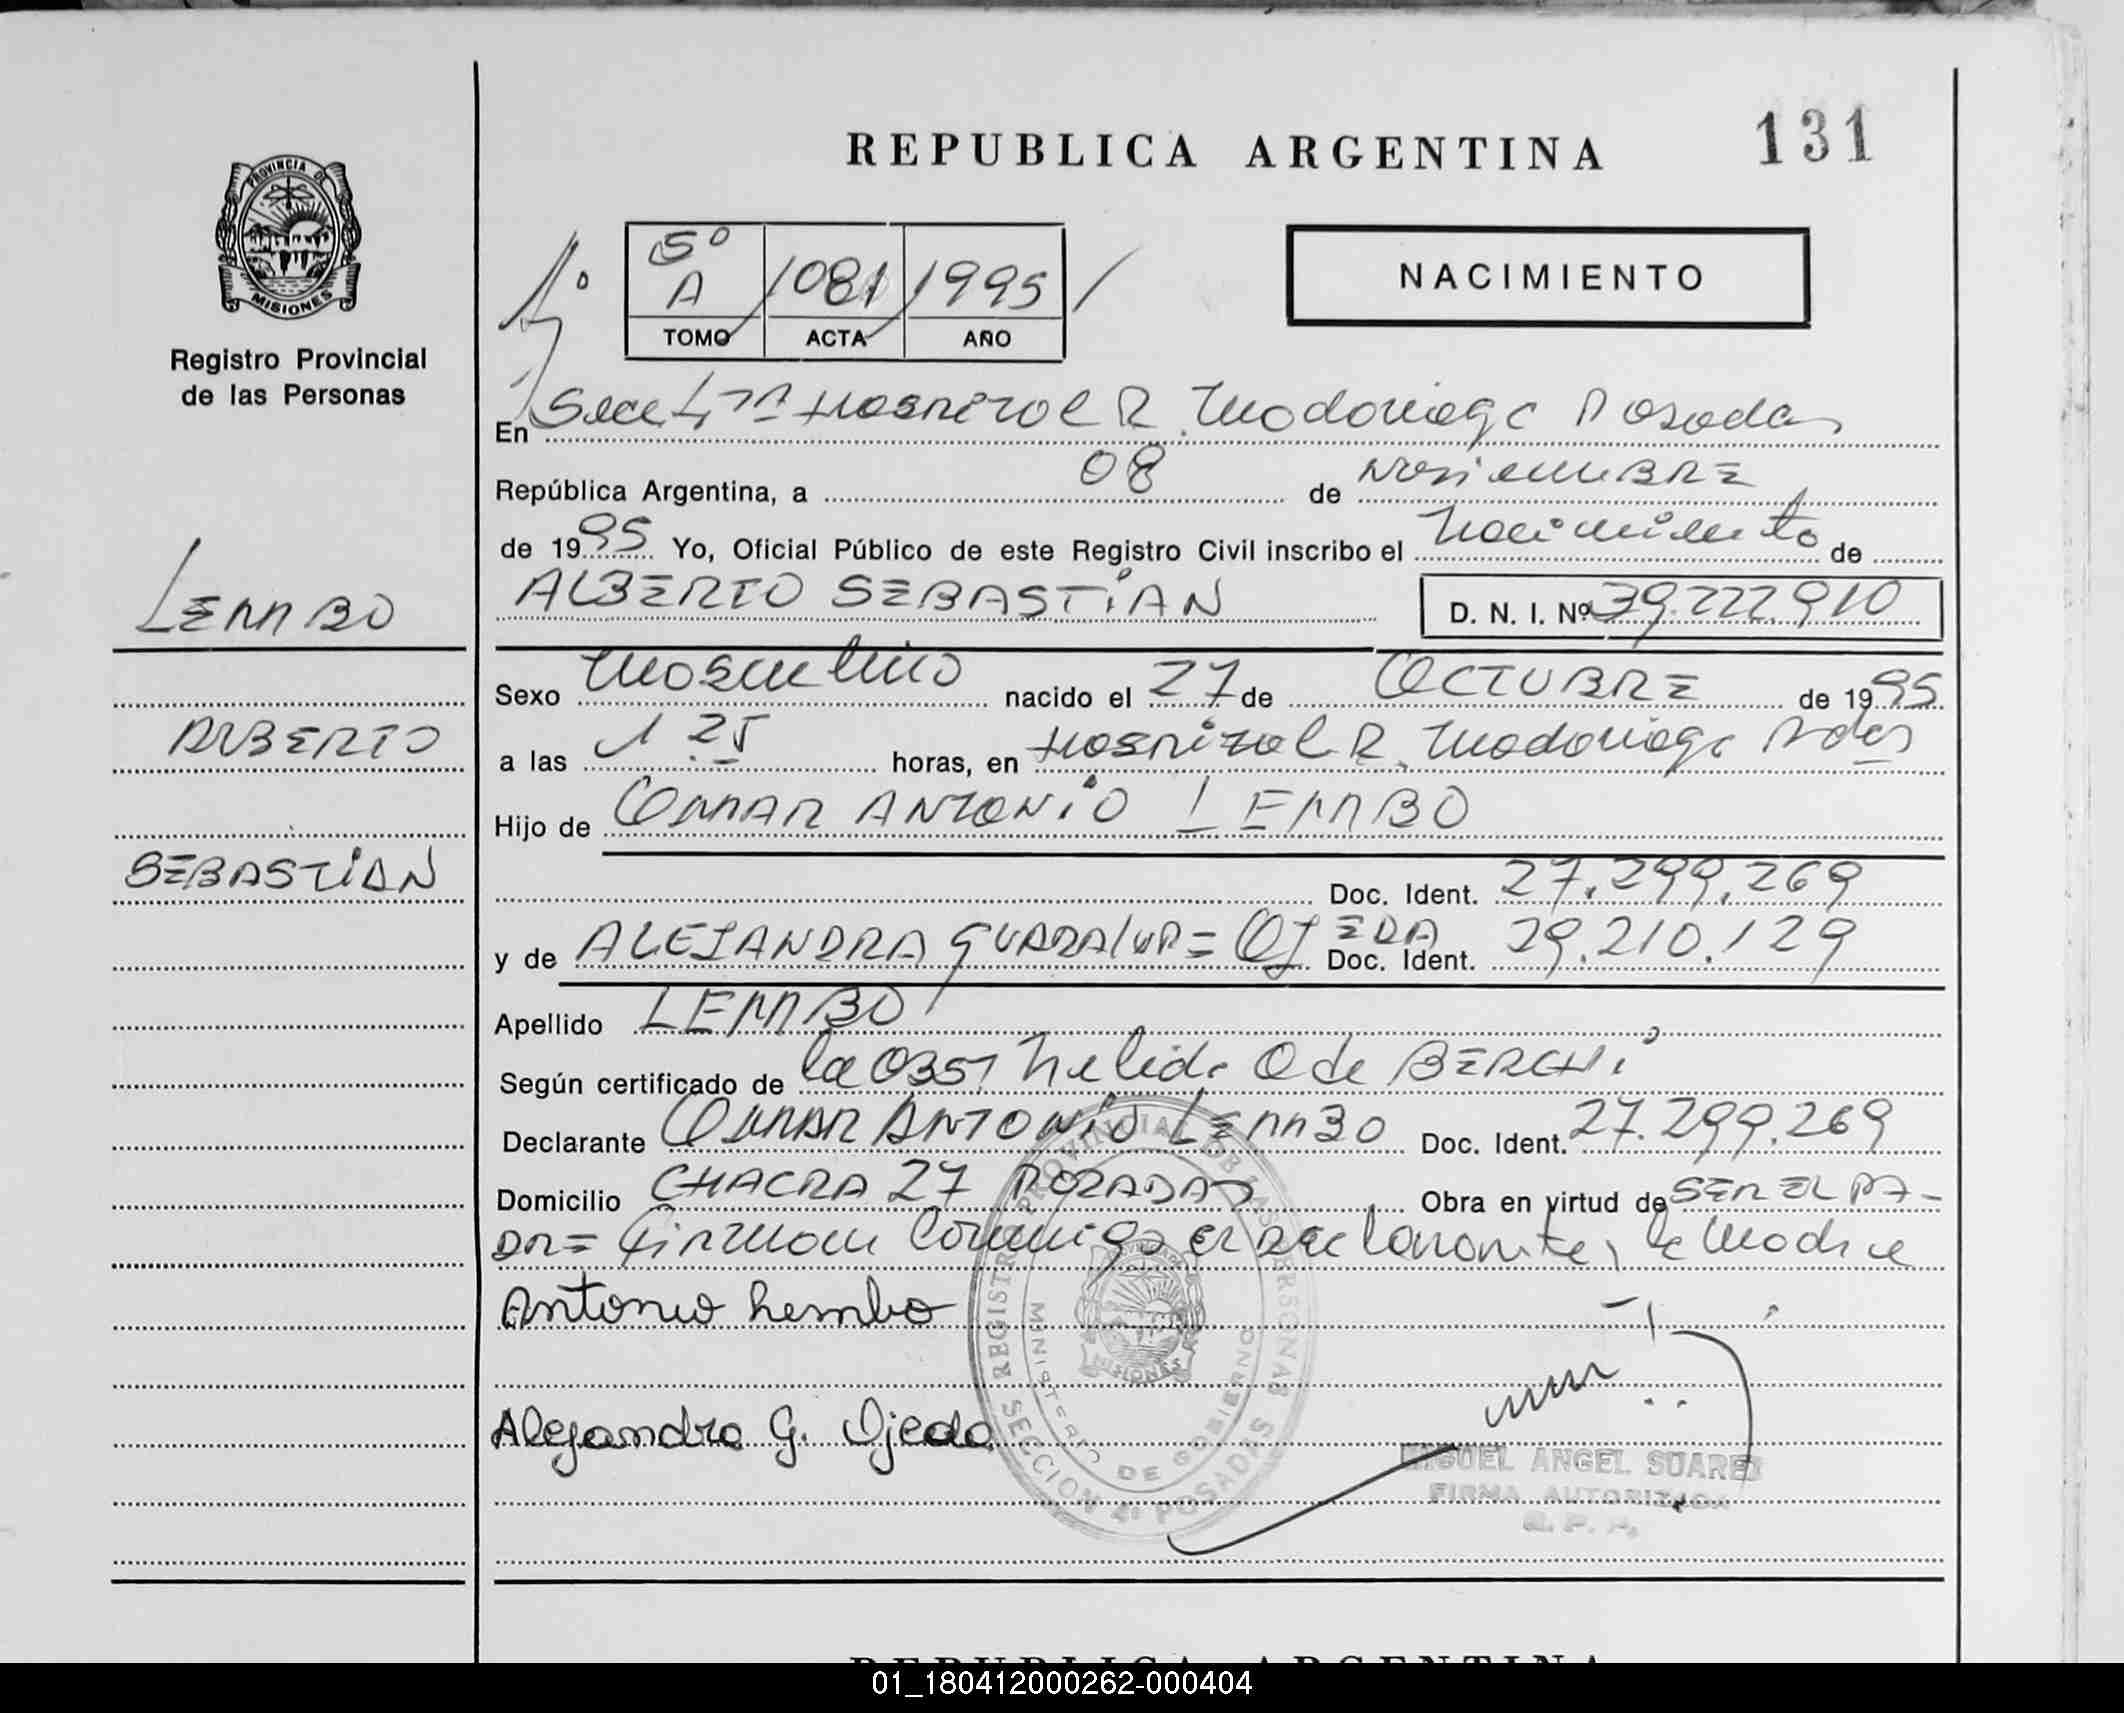 REPUBLICA ARGENTINA
131
PROVINCIA DE
MISIONES
Registro Provincial
de las Personas
5º
A
1081
1995
TOMO
ACTA
AÑO
NACIMIENTO
En Secc 4ta Hospital R. Madariaga Posadas
República Argentina, a 08 de NoviemBRE
de 1995 Yo, Oficial Público de este Registro Civil inscribo el Nacimiento de
ALBERTO SEBASTIAN
D. N. I. Nº 39.222.910
LEMBO
Sexo Masculino nacido el 27 de OCTUBRE de 1995
ALBERTO
a las 1.25 horas, en Hospital R. Madariaga Pdas
Hijo de OMAR ANTONIO LEMBO
SEBASTIAN
Doc. Ident. 27.299.269
y de ALEJANDRA GUADALUPE OJEDA Doc. Ident. 29.210.129
Apellido LEMBO
Según certificado de la OBST Nelida O de BERCHI
Declarante OMAR ANTONIO LEMBO Doc. Ident. 27.299.269
Domicilio CHACRA 27 POSADAS Obra en virtud de SER EL PA-
DRE Firman Conmigo el declarante y la Madre
Antonio Lembo
Alejandra G. Ojeda
REGISTRO PROVINCIAL DE LAS PERSONAS
MINISTERIO DE GOBIERNO
MISIONES
SECCION 4ª POSADAS
MIGUEL ANGEL SUAREZ
FIRMA AUTORIZADA
R. P. P.
REPUBLICA ARGENTINA
01_180412000262-000404